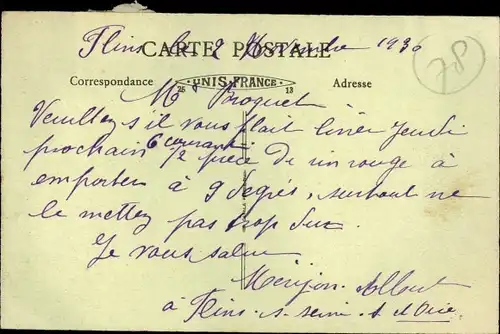 Flins le 2 Novembre 1930
CARTE POSTALE
78
Correspondance
UNIS-FRANCE
Adresse
25
13
Mr Broquet
Veuillez s'il vous plait livrer Jeudi
prochain 6 courant 1/2 pièce de vin rouge à
emporter à 9 degrés, surtout ne
le mettez pas trop dur.
Je vous salue
Merijon Albert
a Flins-s-Seine S et Oise